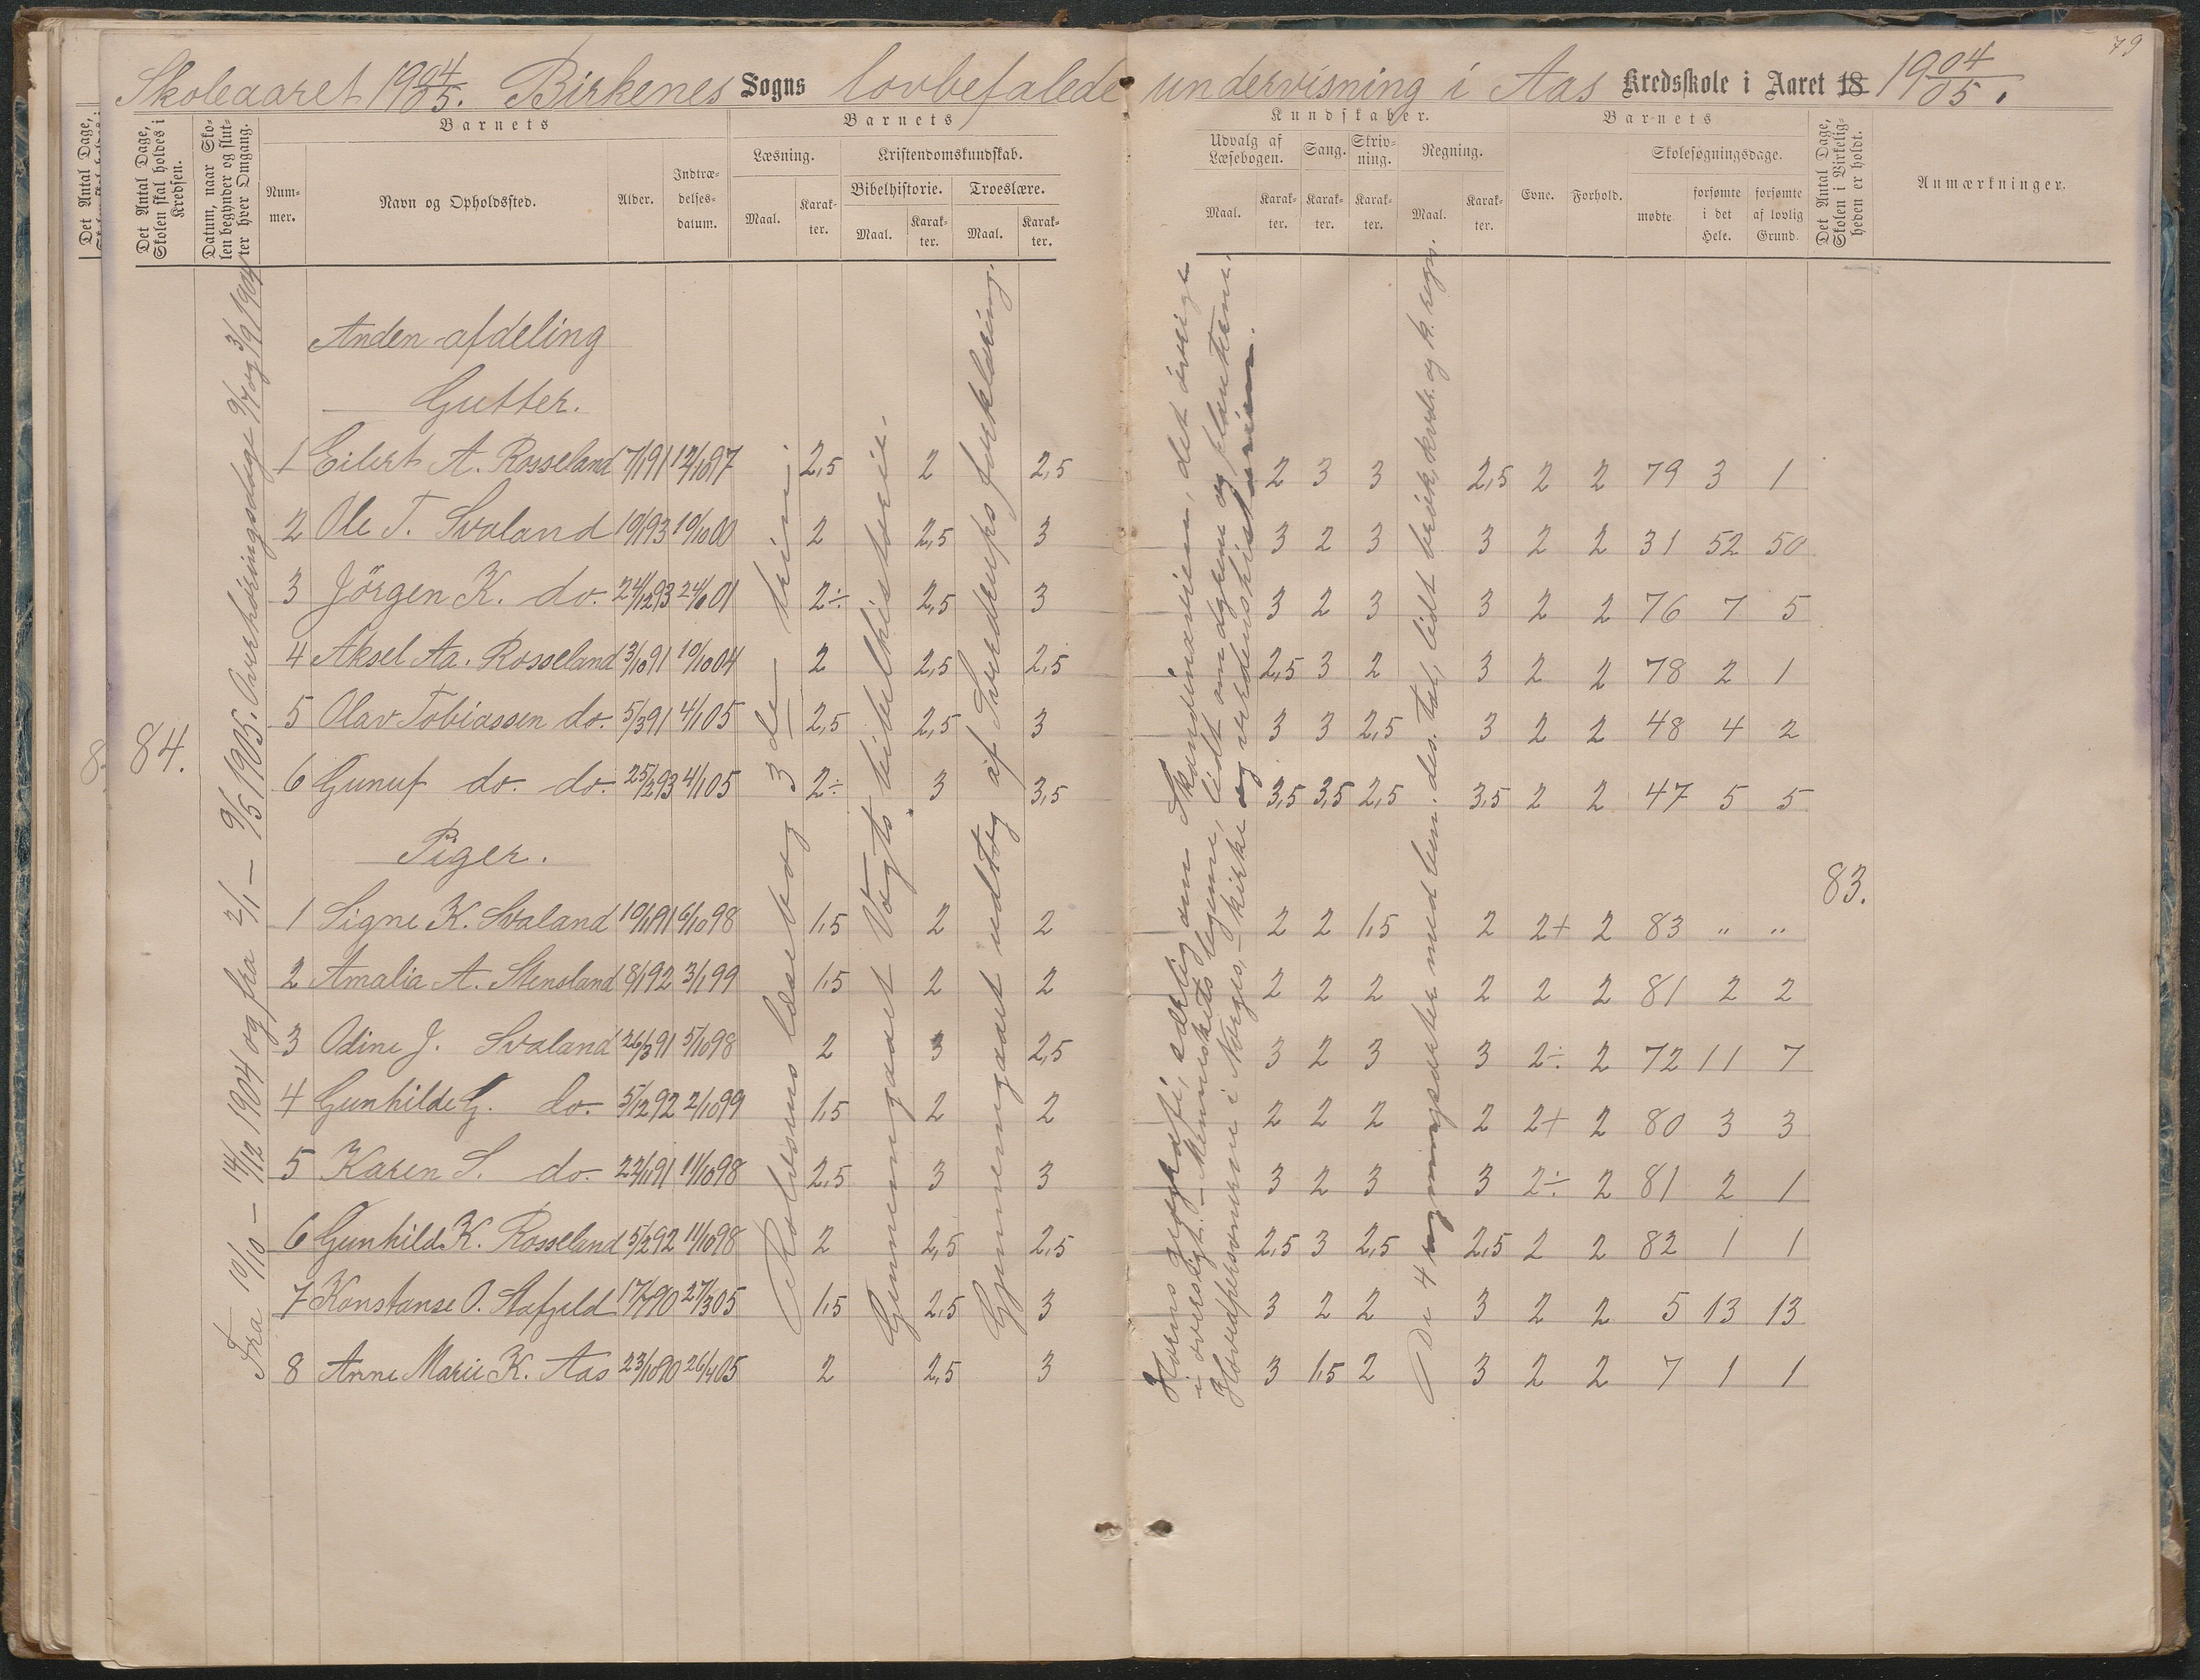 79
Skoleaaret 1904/05. Birkenes Sogns lovbefalede undervisning i Aas Kredsskole i Aaret 18 1904/05.
Det Antal Dage,
Det Antal Dage, Skolen skal holdes i Kredsen.
Datum, naar Skolen begynder og slutter hver Omgang.
Barnets
Nummer.
Navn og Opholdssted.
Alder.
Indtrædelsesdatum.
Barnets
Læsning.
Maal.
Karakter.
Kristendomskundskab.
Bibelhistorie.
Maal.
Karakter.
Troeslære.
Maal.
Karakter.
Kundskaber.
Udvalg af Læsebogen.
Maal.
Karakter.
Sang.
Karakter.
Skrivning.
Karakter.
Regning.
Maal.
Karakter.
Barnets
Evne.
Forhold.
Skolesøgningsdage.
mødte
forsømte i det Hele.
forsømte af lovlig Grund.
Det Antal Dage, Skolen i Virkeligheden er holdt.
Anmærkninger.
84.
Fra 10/10 – 14/12 1904 og fra 2/1 – 9/5 1905. Overhøringsdage 9/7 og 3/9 1904
Anden afdeling
Gutter.
1 Eilert A. Rosseland 7/1 91 12/10 97 2,5 2 2,5 2 3 3 2,5 2 2 79 3 1
2 Ole T. Svaland 10/1 93 10/10 00 2 2,5 3 3 2 3 3 2 2 31 52 50
3 Jörgen K. do. 24/12 93 24/1 01 2÷ 2,5 3 3 2 3 3 2 2 76 7 5
4 Aksel Aa. Rosseland 3/10 91 10/10 04 2 2,5 2,5 2,5 3 2 3 2 2 78 2 1
5 Olav Tobiassen do. 5/3 91 4/1 05 2,5 2,5 3 3 3 2,5 3 2 2 48 4 2
6 Gunuf do. do. 25/2 93 4/1 05 2÷ 3 3,5 3,5 3,5 2,5 3,5 2 2 47 5 5
Piger.
83.
1 Signe K. Svaland 10/1 91 6/10 98 1,5 2 2 2 2 1,5 2 2+ 2 83 " "
2 Amalia A. Stensland 8/1 92 3/1 99 1,5 2 2 2 2 2 2 2 2 81 2 2
3 Odine J. Svaland 26/3 91 5/10 98 2 3 2,5 3 2 3 3 2÷ 2 72 11 7
4 Gunhilde G. do. 5/12 92 2/10 99 1,5 2 2 2 2 2 2 2+ 2 80 3 3
5 Karen S. do. 22/11 91 11/10 98 2,5 3 3 3 2 3 3 2÷ 2 81 2 1
6 Gunhild K. Rosseland 5/2 92 11/10 98 2 2,5 2,5 2,5 3 2,5 2,5 2 2 82 1 1
7 Konstanse O. Stafjeld 17/7 90 27/3 05 1,5 2,5 3 3 2 2 3 2 2 5 13 13
8 Anne Marie K. Aas 23/10 90 26/4 05 2 2,5 3 3 1,5 2 3 2 2 7 1 1
Rolfsens læsebog 3 die trin.
Gjennemgaaet Vogts bibelhistorie.
Gjennemgaaet udtog af Sverdrups forklaring.
Horns geografi, særlig om Skandinavien, det øvrige
i oversigt. – Menneskets legeme, lidt om dyrene og planterne.
Hovedpersonerne i Norges, – kirke og verdenshistorien.
De 4 regningsarter med ben. des. tal, lidt brøk, kvdr. og k. regn.